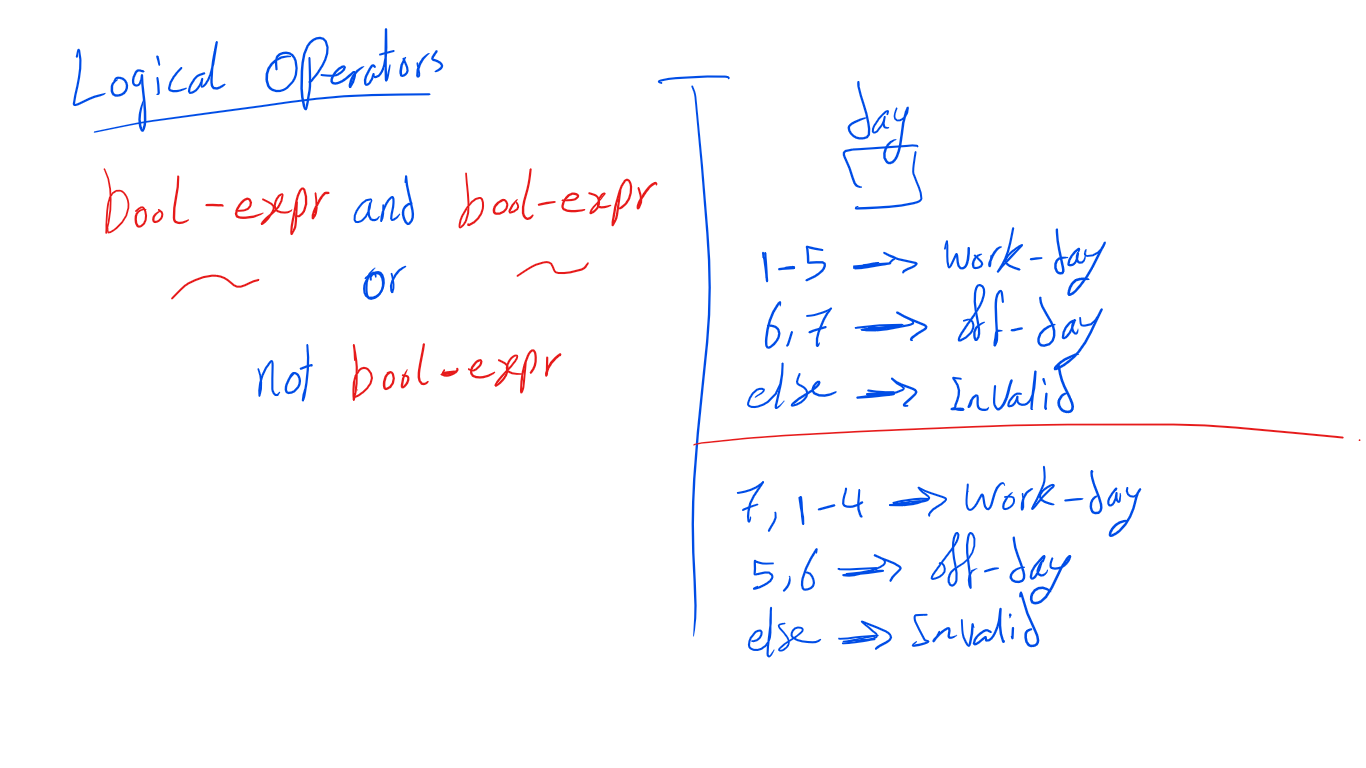 Logical Operators
bool-expr and bool-expr
or
not bool-expr
day
1-5 → work-day
6,7 → off-day
else → Invalid
7, 1-4 → work-day
5,6 → off-day
else → Invalid